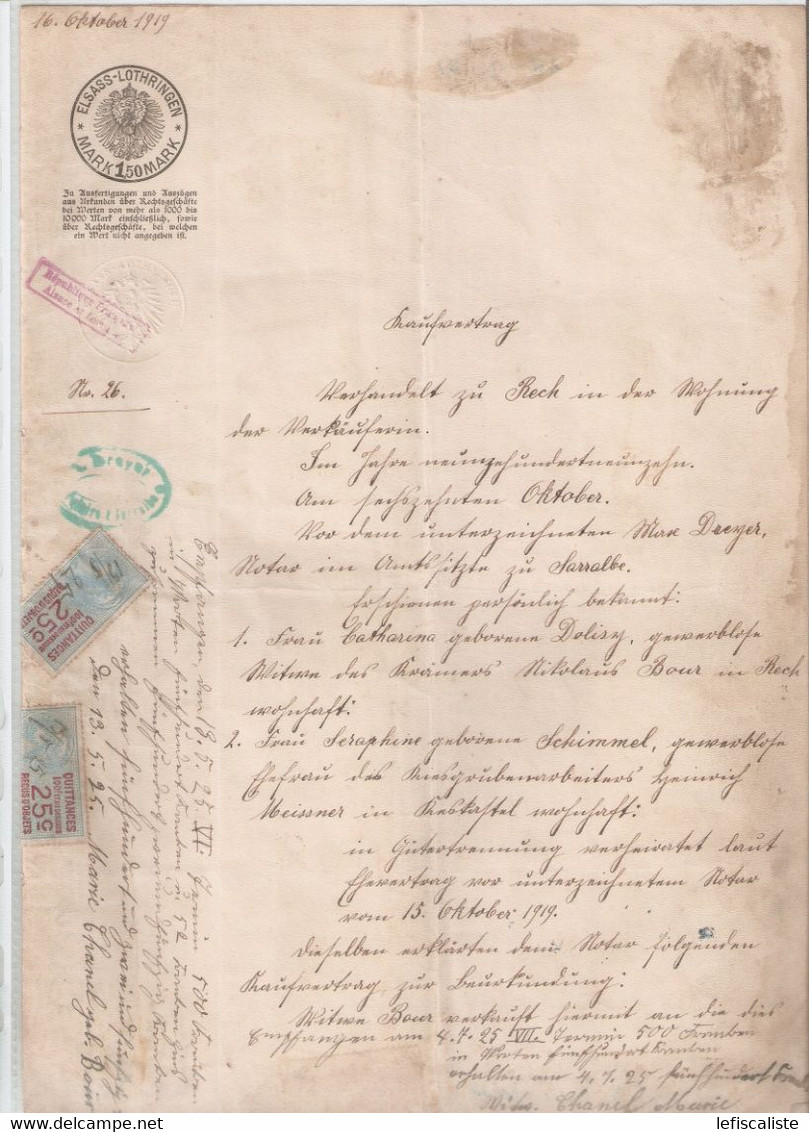 16. Oktober 1919
ELSASS-LOTHRINGEN
MARK 1,50 MARK
Zu Ausfertigungen und Auszügen
aus Urkunden über Rechtsgeschäfte
bei Werten von mehr als 1000 bis
10000 Mark einschließlich, sowie
über Rechtsgeschäfte, bei welchen
ein Wert nicht angegeben ist.
République Française
Alsace et Lorraine
Kaufvertrag
No. 26.
Verhandelt zu Rech in der Wohnung
der Verkäuferin.
Im Jahre neunzehundertneunzehn.
Am sechszehnten Oktober.
Dreyer
Vor dem unterzeichneten Max Dreyer,
Notar im Amtssitze zu Sarralbe.
Erschienen persönlich bekannt:
1. Frau Catharina geborene Dolisy, gewerblose
Witwe des Krämers Nikolaus Bour in Rech
wohnhaft:
2. Frau Seraphine geborene Schimmel, gewerblose
Ehefrau des Kiesgrubenarbeiters Heinrich
Meissner in Keskastel wohnhaft:
in Gütertrennung verheiratet laut
Ehevertrag vor unterzeichnetem Notar
vom 15. Oktober 1919.
Dieselben erklärten dem Notar folgenden
Kaufvertrag zur Beurkundung:
Witwe Bour verkauft hiermit an die dies
Empfangen am 4.7.25 VII. Termin 500 Franken
in Worten fünfhundert Franken
erhalten am 4.7.25 fünfhundert
Witw. Chanel Marie
QUITTANCES
25c
REÇUS D'OBJETS
QUITTANCES
25c
REÇUS D'OBJETS
Empfangen, den 13. 5. 25 VI. Termin 500 Franken
in Worten fünfhundert Franken 52 Franken
fünfhundert zweiundfünfzig Franken
erhalten fünfhundert und zweiundfünfzig
den 13. 5. 25. Marie Chanel geb. Bour
lefiscaliste